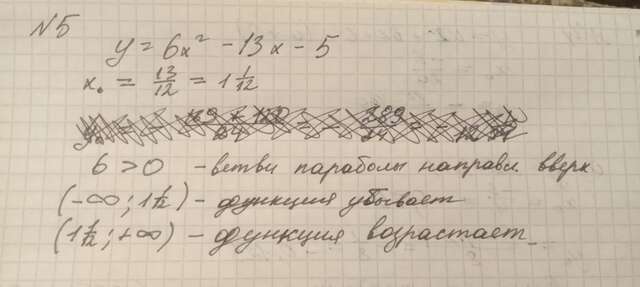 №5
y = 6x² - 13x - 5
x₀ = 13/12 = 1 1/12
6 > 0 - ветви параболы направл. вверх
(-∞; 1 1/12) - функция убывает
(1 1/12; +∞) - функция возрастает